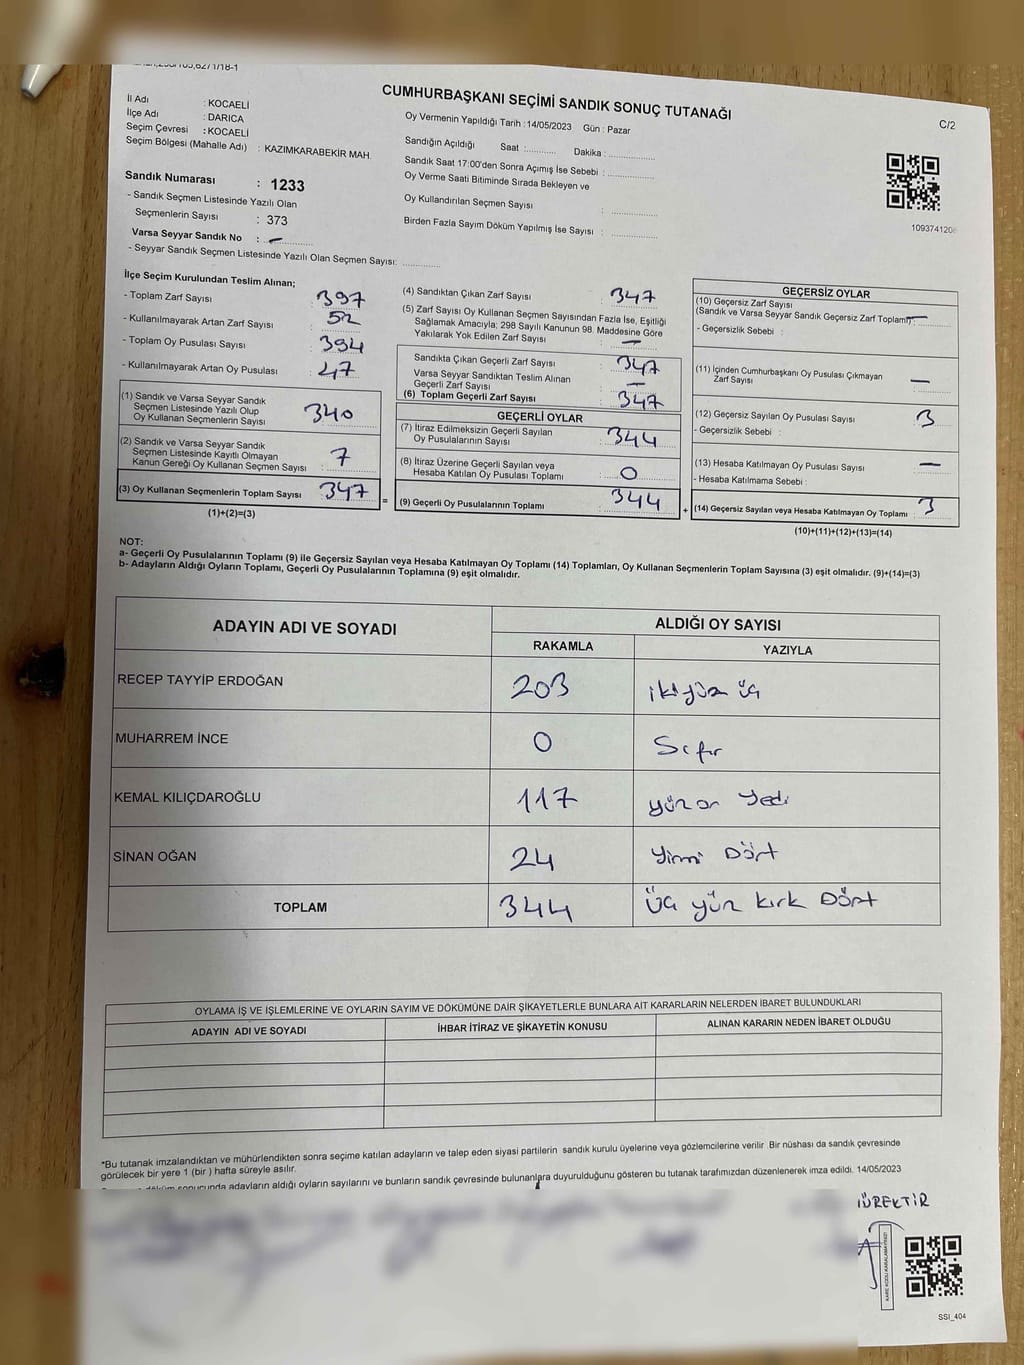 CUMHURBAŞKANI SEÇİMİ SANDIK SONUÇ TUTANAĞI
C/2
İl Adı : KOCAELİ
İlçe Adı : DARICA
Seçim Çevresi : KOCAELİ
Seçim Bölgesi (Mahalle Adı) : KAZIMKARABEKİR MAH.
Oy Vermenin Yapıldığı Tarih : 14/05/2023 Gün : Pazar
Sandığın Açıldığı Saat : Dakika :
Sandık Saat 17:00'den Sonra Açımış İse Sebebi :
Oy Verme Saati Bitiminde Sırada Bekleyen ve
Oy Kullandırılan Seçmen Sayısı :
Birden Fazla Sayım Döküm Yapılmış İse Sayısı :
Sandık Numarası : 1233
- Sandık Seçmen Listesinde Yazılı Olan
Seçmenlerin Sayısı : 373
Varsa Seyyar Sandık No : -
- Seyyar Sandık Seçmen Listesinde Yazılı Olan Seçmen Sayısı:
İlçe Seçim Kurulundan Teslim Alınan;
- Toplam Zarf Sayısı : 397
- Kullanılmayarak Artan Zarf Sayısı : 52
- Toplam Oy Pusulası Sayısı : 394
- Kullanılmayarak Artan Oy Pusulası : 47
(1) Sandık ve Varsa Seyyar Sandık
Seçmen Listesinde Yazılı Olup
Oy Kullanan Seçmenlerin Sayısı : 340
(2) Sandık ve Varsa Seyyar Sandık
Seçmen Listesinde Kayıtlı Olmayan
Kanun Gereği Oy Kullanan Seçmen Sayısı : 7
(3) Oy Kullanan Seçmenlerin Toplam Sayısı : 347
(1)+(2)=(3)
(4) Sandıktan Çıkan Zarf Sayısı : 347
(5) Zarf Sayısı Oy Kullanan Seçmen Sayısından Fazla İse, Eşitliği
Sağlamak Amacıyla; 298 Sayılı Kanunun 98. Maddesine Göre
Yakılarak Yok Edilen Zarf Sayısı : -
Sandıkta Çıkan Geçerli Zarf Sayısı : 347
Varsa Seyyar Sandıktan Teslim Alınan
Geçerli Zarf Sayısı : -
(6) Toplam Geçerli Zarf Sayısı : 347
GEÇERLİ OYLAR
(7) İtiraz Edilmeksizin Geçerli Sayılan
Oy Pusulalarının Sayısı : 344
(8) İtiraz Üzerine Geçerli Sayılan veya
Hesaba Katılan Oy Pusulası Toplamı : 0
(9) Geçerli Oy Pusulalarının Toplamı : 344
GEÇERSİZ OYLAR
(10) Geçersiz Zarf Sayısı
(Sandık ve Varsa Seyyar Sandık Geçersiz Zarf Toplamı): -
- Geçersizlik Sebebi :
(11) İçinden Cumhurbaşkanı Oy Pusulası Çıkmayan
Zarf Sayısı : -
(12) Geçersiz Sayılan Oy Pusulası Sayısı : 3
- Geçersizlik Sebebi :
(13) Hesaba Katılmayan Oy Pusulası Sayısı : -
- Hesaba Katılmama Sebebi :
(14) Geçersiz Sayılan veya Hesaba Katılmayan Oy Toplamı : 3
(10)+(11)+(12)+(13)=(14)
NOT:
a- Geçerli Oy Pusulalarının Toplamı (9) ile Geçersiz Sayılan veya Hesaba Katılmayan Oy Toplamı (14) Toplamları, Oy Kullanan Seçmenlerin Toplam Sayısına (3) eşit olmalıdır. (9)+(14)=(3)
b- Adayların Aldığı Oyların Toplamı, Geçerli Oy Pusulalarının Toplamına (9) eşit olmalıdır.
ADAYIN ADI VE SOYADI ALDIĞI OY SAYISI
RAKAMLA YAZIYLA
RECEP TAYYİP ERDOĞAN 203 ikiyüz üç
MUHARREM İNCE 0 Sıfır
KEMAL KILIÇDAROĞLU 117 yüz on yedi
SİNAN OĞAN 24 yirmi Dört
TOPLAM 344 üç yüz kırk Dört
OYLAMA İŞ VE İŞLEMLERİNE VE OYLARIN SAYIM VE DÖKÜMÜNE DAİR ŞİKAYETLERLE BUNLARA AİT KARARLARIN NELERDEN İBARET BULUNDUKLARI
ADAYIN ADI VE SOYADI İHBAR İTİRAZ VE ŞİKAYETİN KONUSU ALINAN KARARIN NEDEN İBARET OLDUĞU
*Bu tutanak imzalandıktan ve mühürlendikten sonra seçime katılan adayların ve talep eden siyasi partilerin sandık kurulu üyelerine veya gözlemcilerine verilir. Bir nüshası da sandık çevresinde
görülecek bir yere 1 (bir ) hafta süreyle asılır.
adayların aldığı oyların sayılarını ve bunların sandık çevresinde bulunanlara duyurulduğunu gösteren bu tutanak tarafımızdan düzenlenerek imza edildi. 14/05/2023
SSI_404